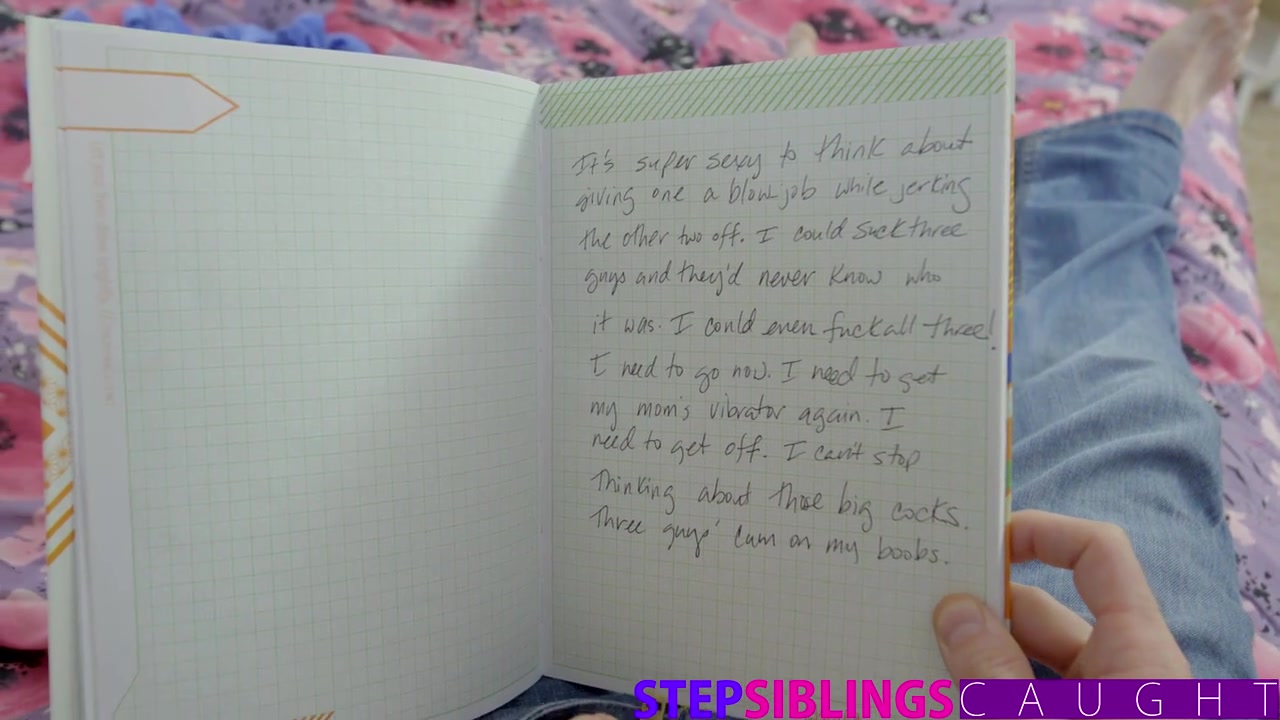 It's super sexy to think about
giving one a blowjob while jerking
the other two off. I could suck three
guys and they'd never know who
it was. I could even fuck all three!
I need to go now. I need to get
my mom's vibrator again. I
need to get off. I can't stop
thinking about those big cocks.
Three guys' cum on my boobs.
STEPSIBLINGSCAUGHT